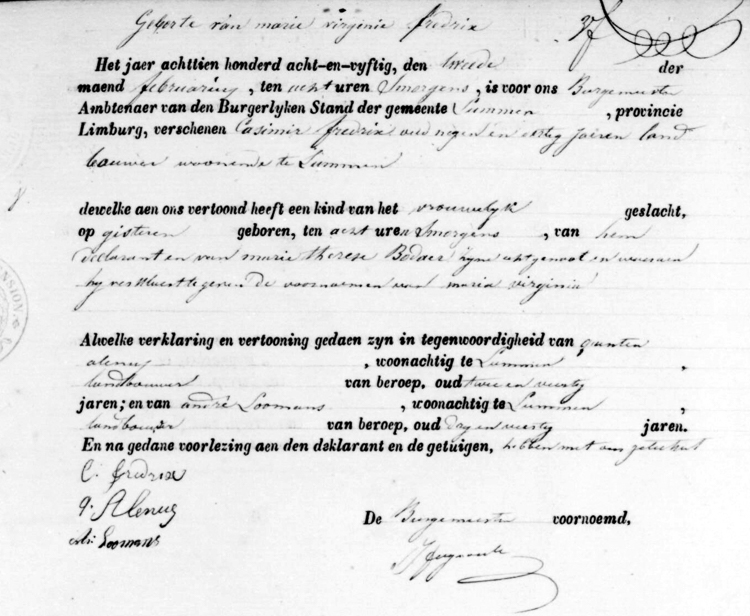 Geborte van marie virginie fredrix
Het jaer achttien honderd acht-en-vyftig, den tweede der
maend february, ten acht uren Smorgens, is voor ons Burgemeester
Ambtenaer van den Burgerlyken Stand der gemeente Lummen, provincie
Limburg, verschenen Casimir fredrix oud negen en jaeren land
bouwer woonende te Lummen
dewelke aen ons vertoond heeft een kind van het vrouwelyk geslacht,
op gisteren geboren, ten acht uren Smorgens, van hem
declarant en van marie therese Bodaer zyne echtgenoot en
hy te geven de voornaemen van maria virginia
Alwelke verklaring en vertooning gedaen zyn in tegenwoordigheid van quinten
alenus, woonachtig te Lummen,
landbouwer van beroep, oud twee en veertig
jaren; en van andré Loomans, woonachtig te Lummen,
landbouwer van beroep, oud dry en veertig jaren.
En na gedane voorlezing aen den deklarant en de getuigen, hebben met ons geteekent
C. fredrix
q. Alenus
Loomans
De Burgemeester voornoemd,